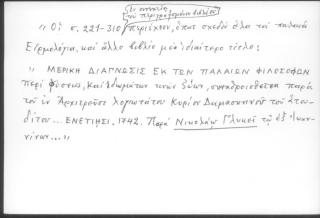 Ἐν συνεχείᾳ
τοῦ περιγραφομένου βιβλίου
"Οἱ σ. 221-310 περιέχουν, ὅπως σχεδὸν ὅλα τὰ παλαιὰ
Εἱρμολόγια, καὶ ἄλλο βιβλίο μὲ ἰδιαίτερο τίτλο:
" ΜΕΡΙΚΗ ΔΙΑΓΝΩΣΙΣ ΕΚ ΤΩΝ ΠΑΛΑΙΩΝ ΦΙΛΟΣΟΦΩΝ
περὶ φύσεως, καὶ ἰδιωμάτων τινῶν ζώων, συναθροισθεῖσα παρὰ
τοῦ ἐν Ἀρχιερεῦσι λογιωτάτου Κυρίου Δαμασκηνοῦ τοῦ Στου-
δίτου... ΕΝΕΤΙΗΣΙ. 1742. Παρὰ Νικολάῳ Γλυκεῖ τῷ ἐξ Ἰωαν-
νίνων..."